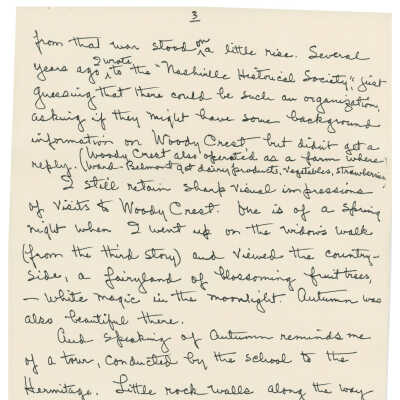 3
from that war stood on a little rise. Several
years ago I wrote to the "Nashville Historical Society", just
guessing that there could be such an organization,
asking if they might have some background
information on Woody Crest, but didn't get a
reply. (Woody Crest also operated as a farm where
Ward-Belmont got dairy products, vegetables, strawberries
I still retain sharp visual impressions
of visits to Woody Crest. One is of a Spring
night when I went up on the widow's walk
(from the third story) and viewed the country-
side, a fairyland of blossoming fruit trees,
– white magic in the moonlight. Autumn was
also beautiful there.
And speaking of Autumn reminds me
of a tour, conducted by the school to the
Hermitage. Little rock walls along the way